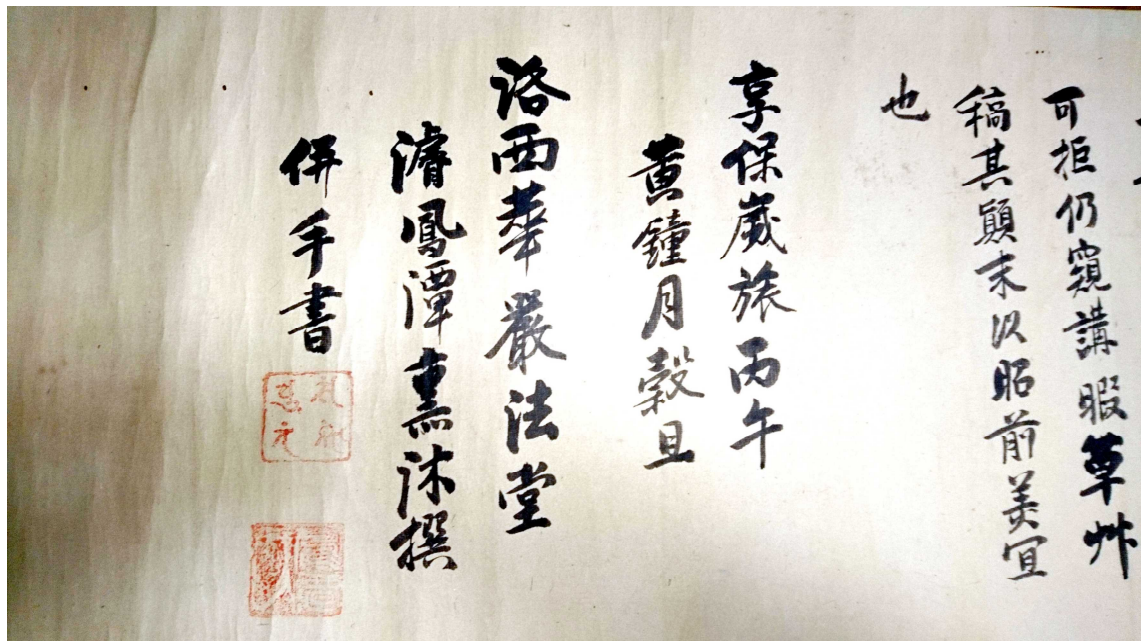 可拒仍窺講暇草艸
稿其顛末以昭前美宜
也
享保歲旅丙午
黄鐘月穀旦
洛西華嚴法堂
濬鳳潭熏沐撰
併手書